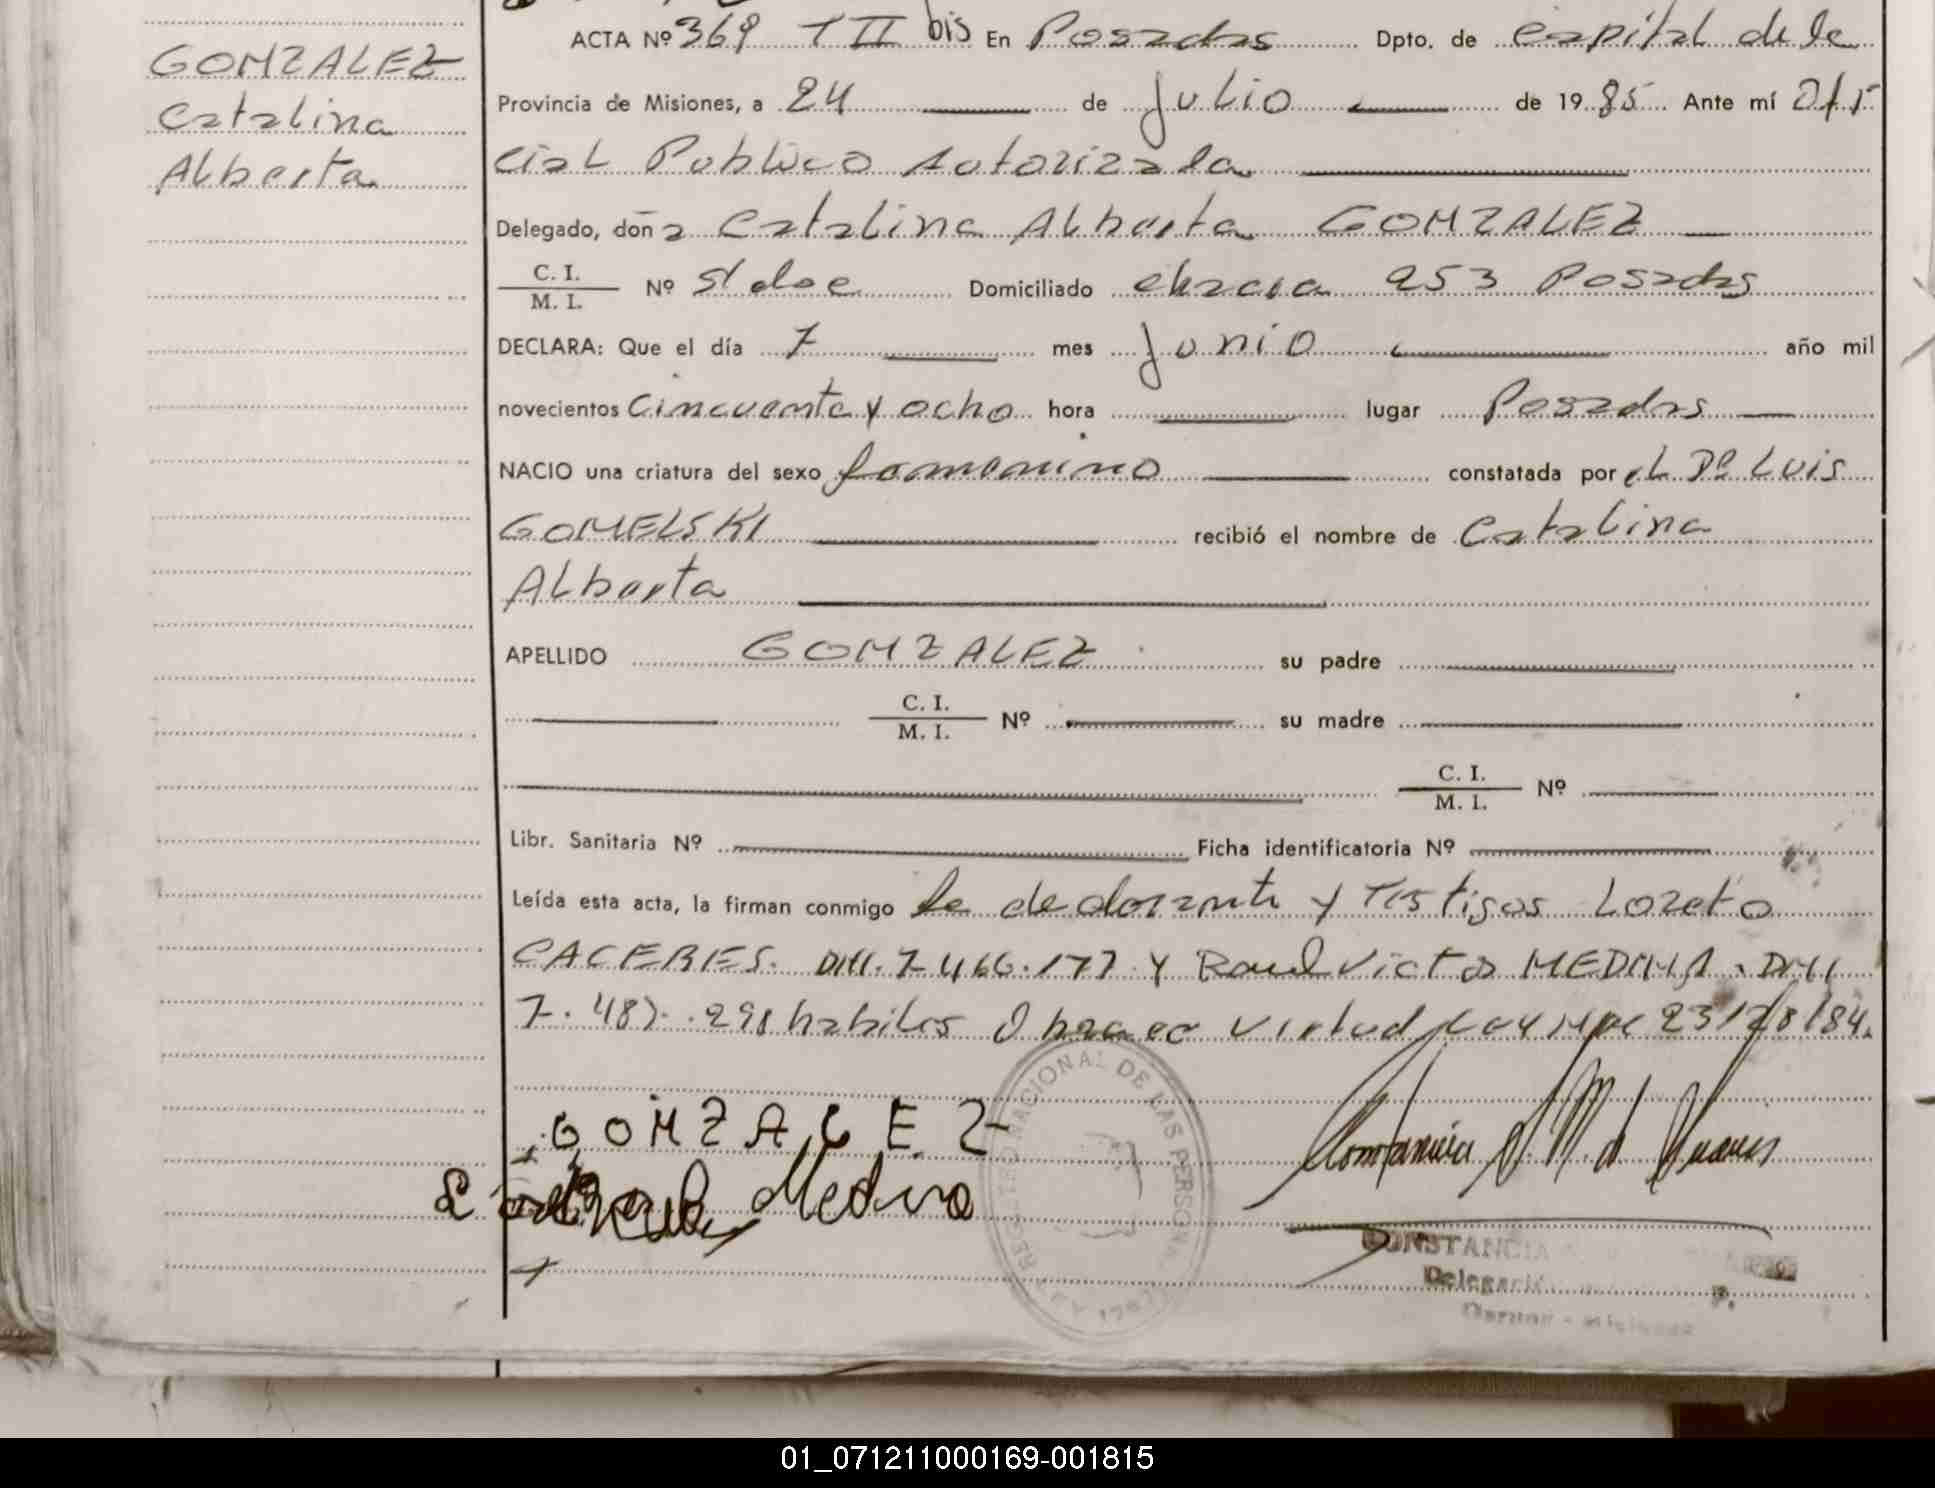 GONZALEZ
Catalina
Alberta
ACTA Nº 369 T II bis En Posadas Dpto. de capital de la
Provincia de Misiones, a 24 de Julio de 1985 Ante mí Ofi
cial Publico Autorizada
Delegado, doña Catalina Alberta GONZALEZ
C. I.
M. I. Nº s/doc Domiciliado chacra 253 Posadas
DECLARA: Que el día 7 mes Junio año mil
novecientos Cincuenta y ocho hora lugar Posadas
NACIO una criatura del sexo femenino constatada por el Dr Luis
GOMELSKI recibió el nombre de Catalina
Alberta
APELLIDO GONZALEZ su padre
C. I.
M. I. Nº su madre
C. I.
M. I. Nº
Libr. Sanitaria Nº Ficha identificatoria Nº
Leída esta acta, la firman conmigo la declarante y Testigos Loreto
CACERES. DNI. 7.466.177 y Raul Victor MEDINA. DNI
7.487.291 habiles Obra en virtud 23/28/84.
GONZALEZ
Raul Medina
REGISTRO NACIONAL DE LAS PERSONAS
CONSTANCIA
Delegación